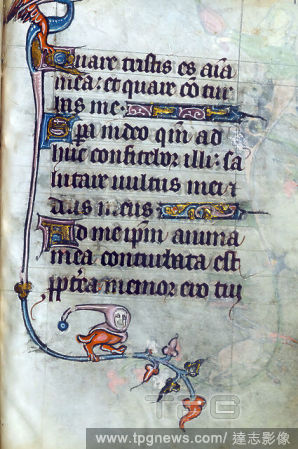 Quare tristis es aīa
mea: et quare cōtur
bas me.
Spa in deo qm̄ ad
huc confitebor illi: sa
lutare vultus mei ⁊
deus meus:
Ad me ipm̄ anima
mea conturbata est
ppt̄ea memor ero tui
TPG
www.tpgnews.com / 達志影像